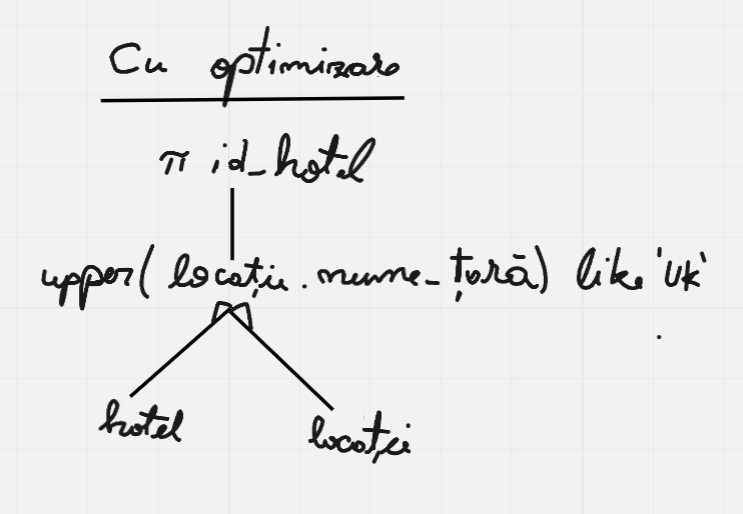 Cu optimizare
π id_hotel
upper(locație.nume_țară) like 'UK'
hotel
locație